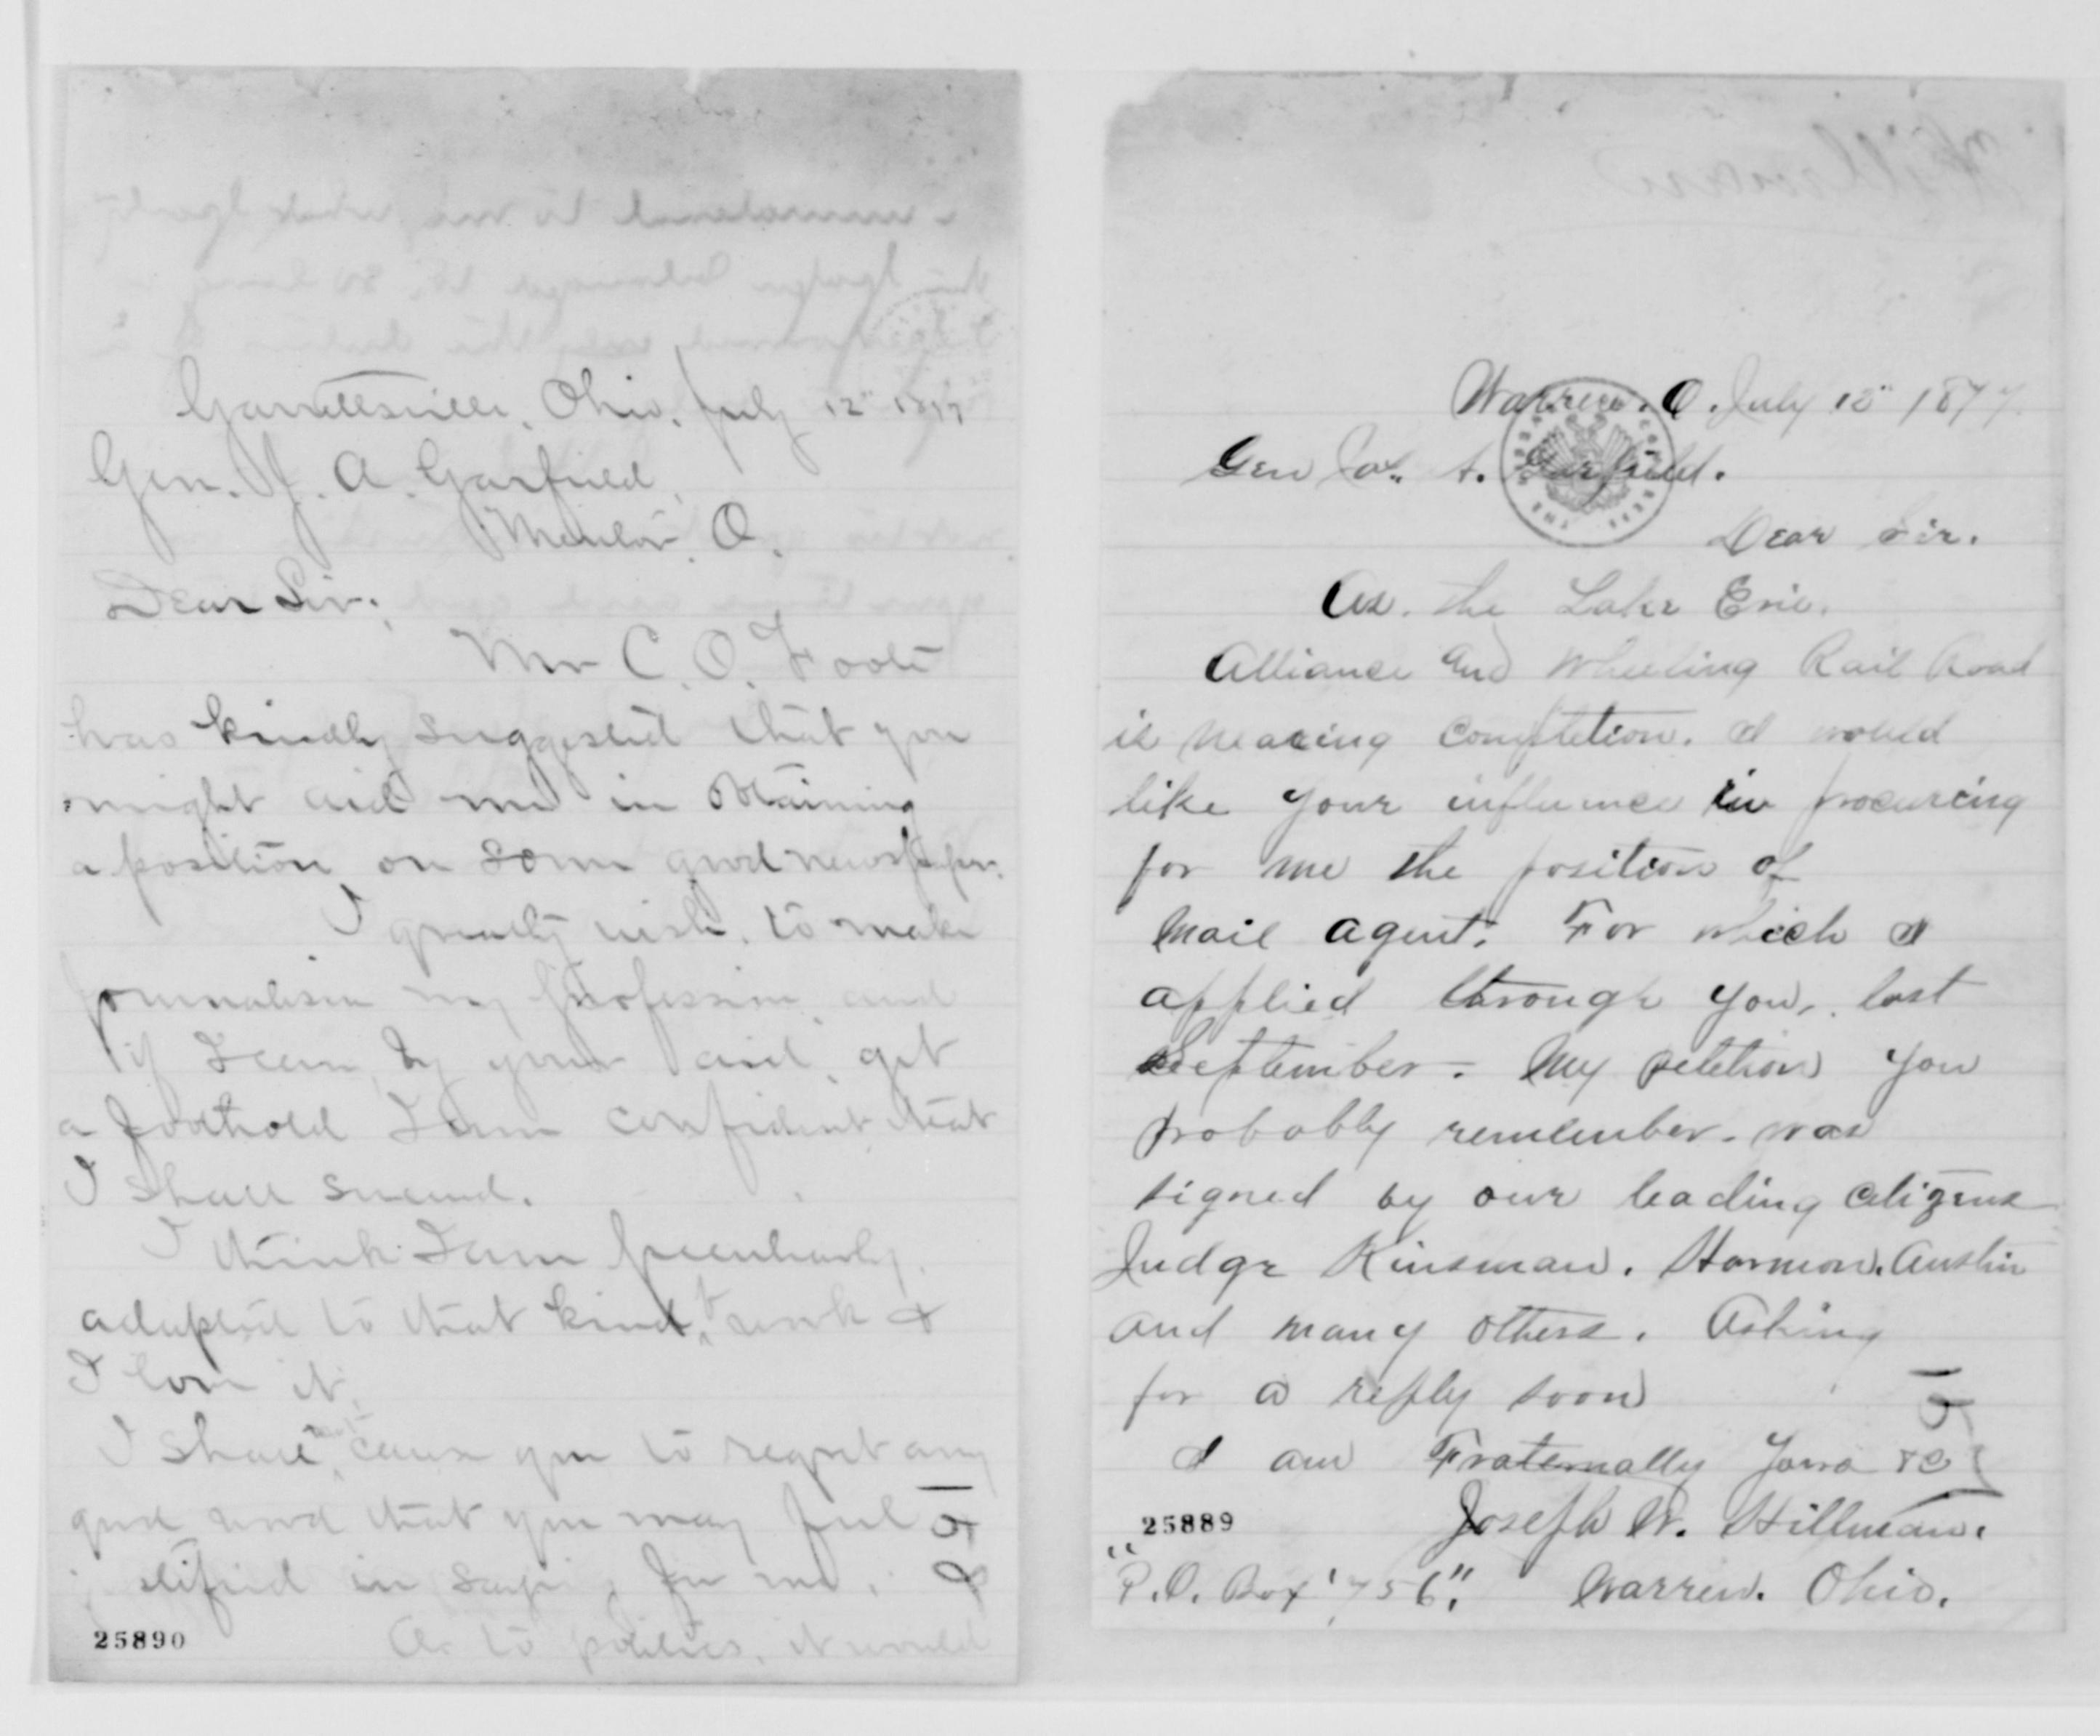 Garrettsville, Ohio, July 12" 1877
Gen. J. A. Garfield,
Mentor, O.
Dear Sir;
Mr C. O. Foote
has kindly suggested that you
might aid me in obtaining
a position on some good newspaper.
I greatly wish, to make
journalism my profession, and
if I can, by your aid, get
a foothold I am confident that
I shall succeed.
I think I am peculiarly
adapted to that kind of work &
I love it.
I shall not cause you to regret any
good word that you may feel
justified in saying for me.
As to politics, it would
25890
Warren. O. July 12" 1877.
Gen Jas. A. Garfield.
Dear Sir.
As. the Lake Erie.
Alliance and Wheeling Rail Road
is nearing Completion. I would
like your influence in procuring
for me the position of
Mail agent. For which I
applied through you, last
September. My petition you
probably remember. was
signed by our leading Citizens
Judge Kinsman. Harmon. Austin
and many others. Asking
for a reply soon
I am Fraternally Yours &c
Joseph W. Hillman.
25889
"P.O. Box '756". Warren. Ohio.